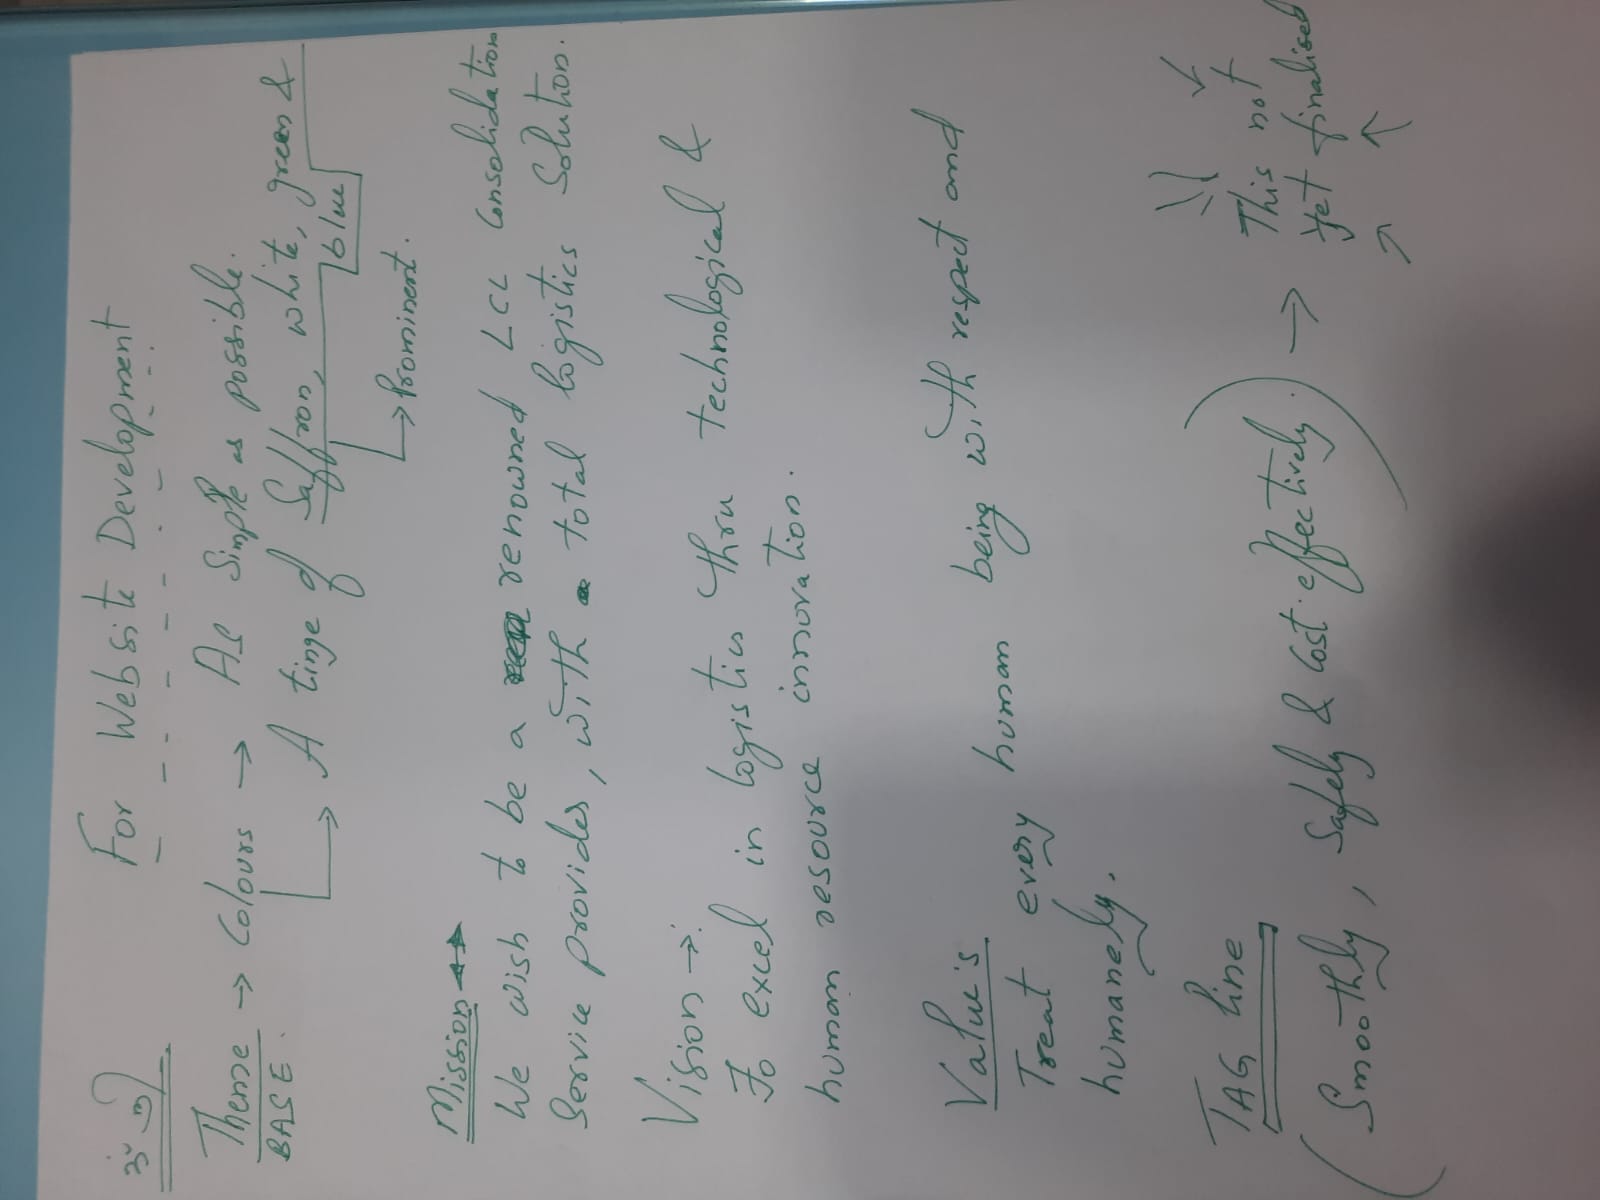 For Website Development
Theme → Colours → As Simple as possible.
BASE.
→ A tinge of Saffron, white, green &
blue
→ Prominent.
Mission
We wish to be a renowned LCL Consolidation
Service provider, with total logistics Solution.
Vision →:
To excel in logistics thru technological &
human resource innovation.
Value's
Treat every human being with respect and
humanely.
TAG line
(Smoothly, Safely & Cost effectively.) → This not
yet finalised